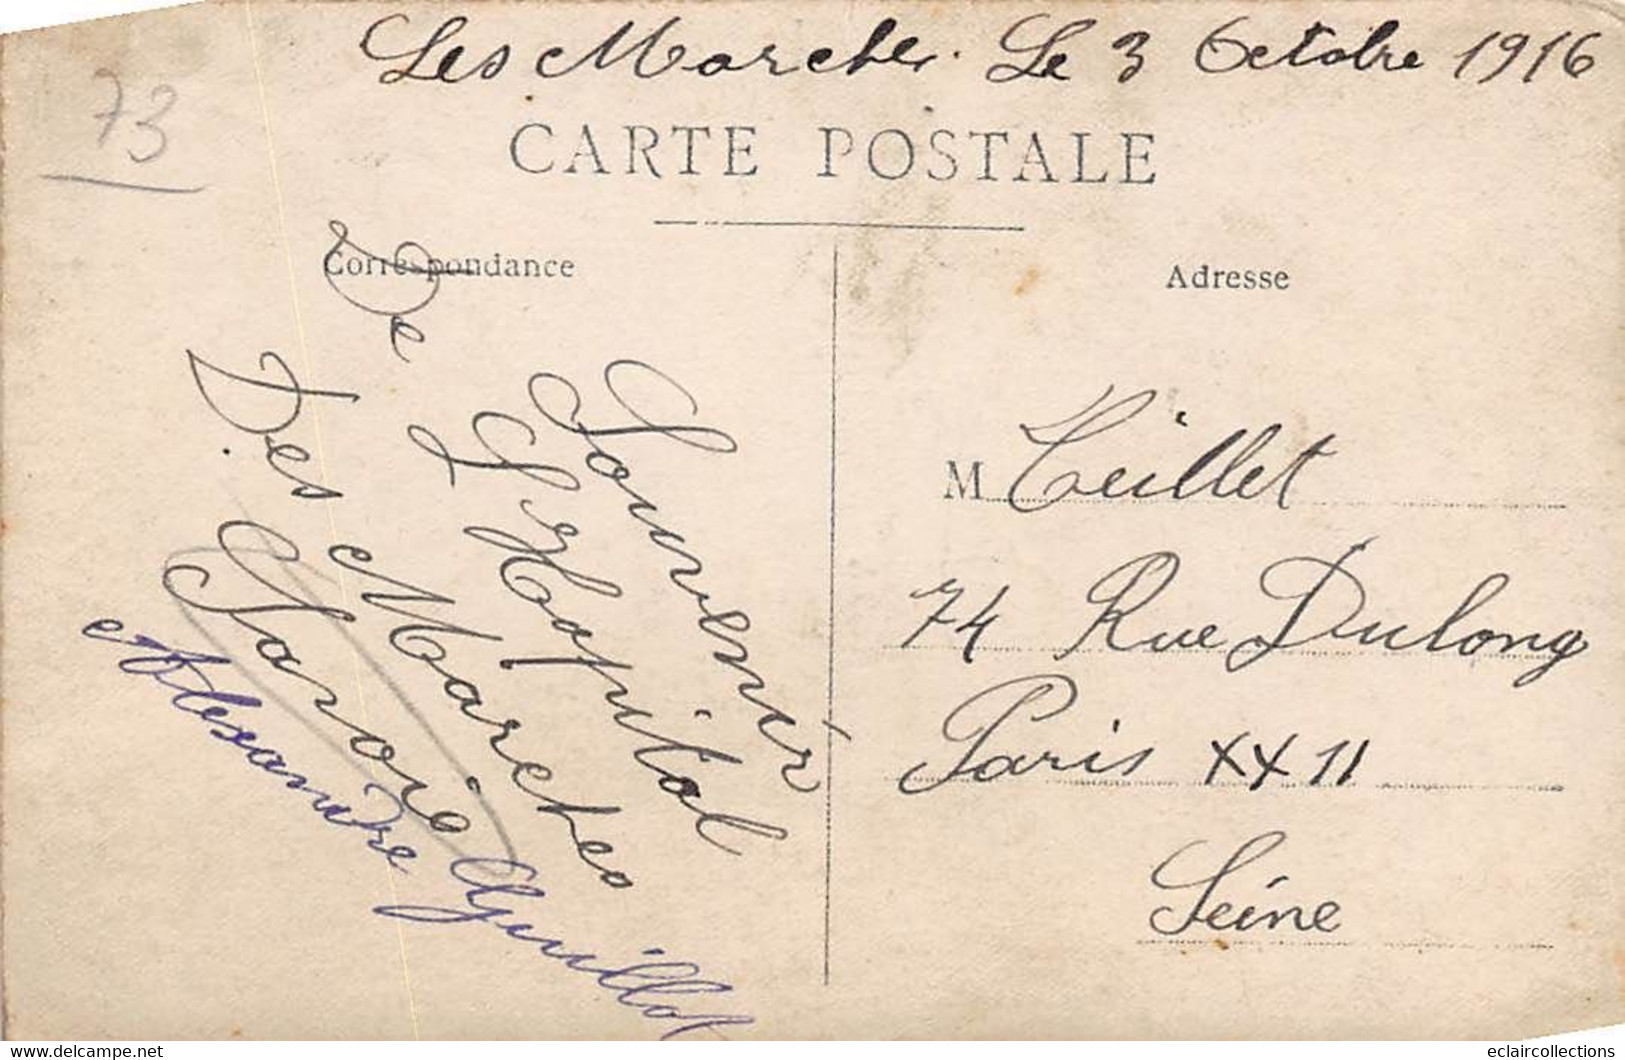 Les Marches. Le 3 Octobre 1916
73
CARTE POSTALE
Correspondance
Adresse
Souvenir
De L'Hopital
Des Marches
Savoie
Alexandre Guillot
M Teillet
74 Rue Dulong
Paris XX11
Seine
www.delcampe.net
eclaircollections